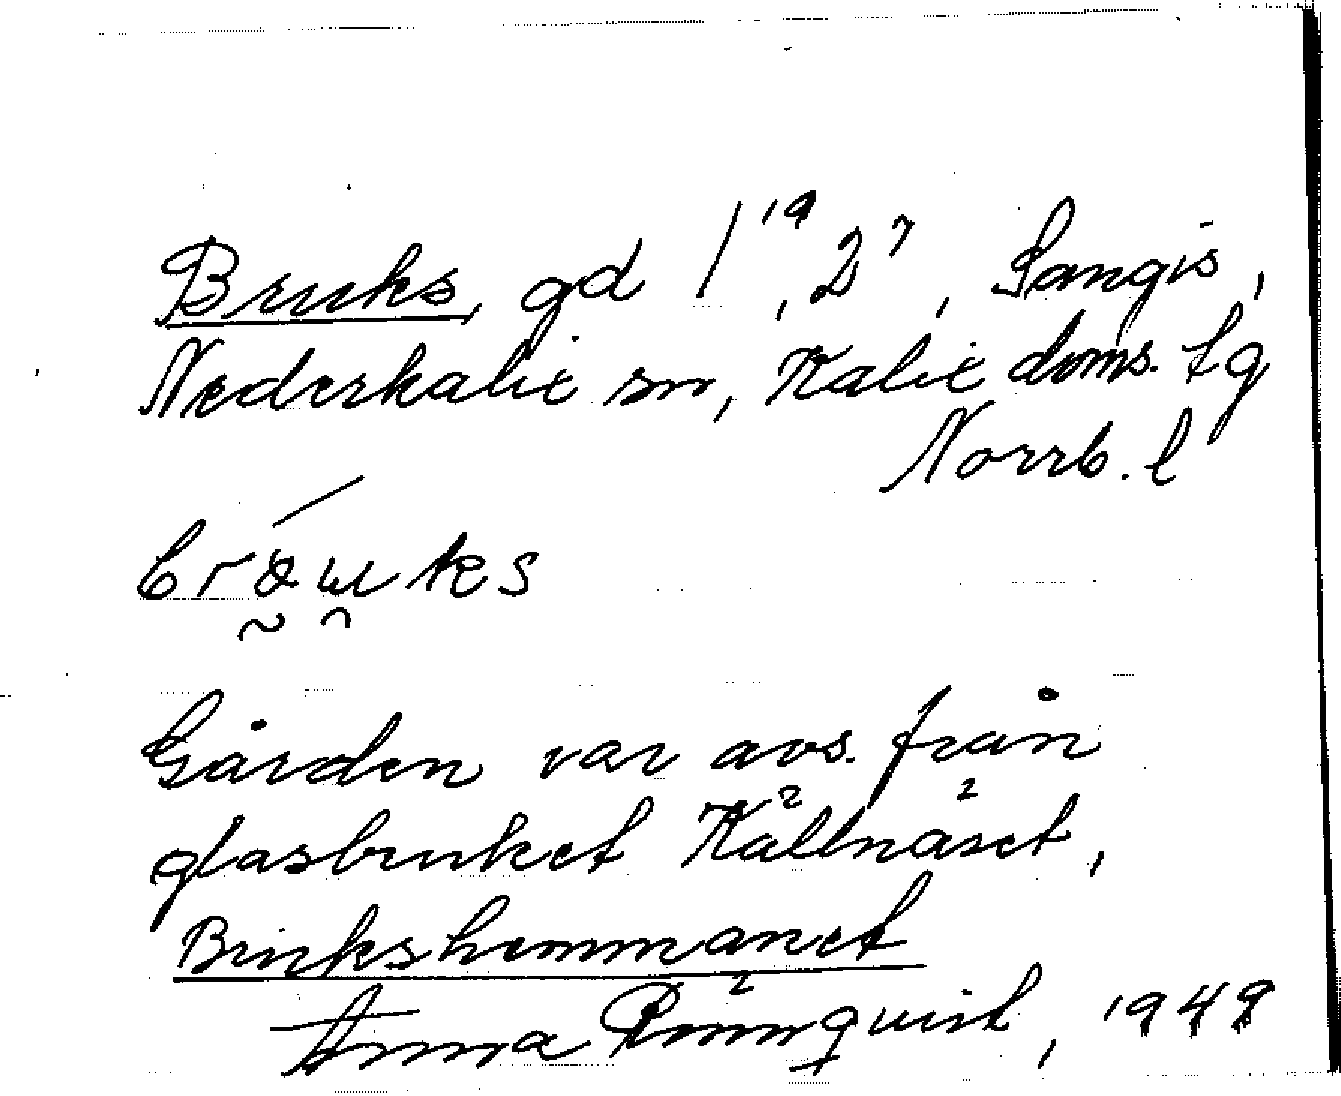 Bruks, gd 1¹⁹, 2⁷, Sangis,
Nederkalix sn, Kalix doms. lg
Norrb. l
Gården var avs. från
glasbruket Källnäset,
Brukshemmanet
Anna Rönnquist, 1949